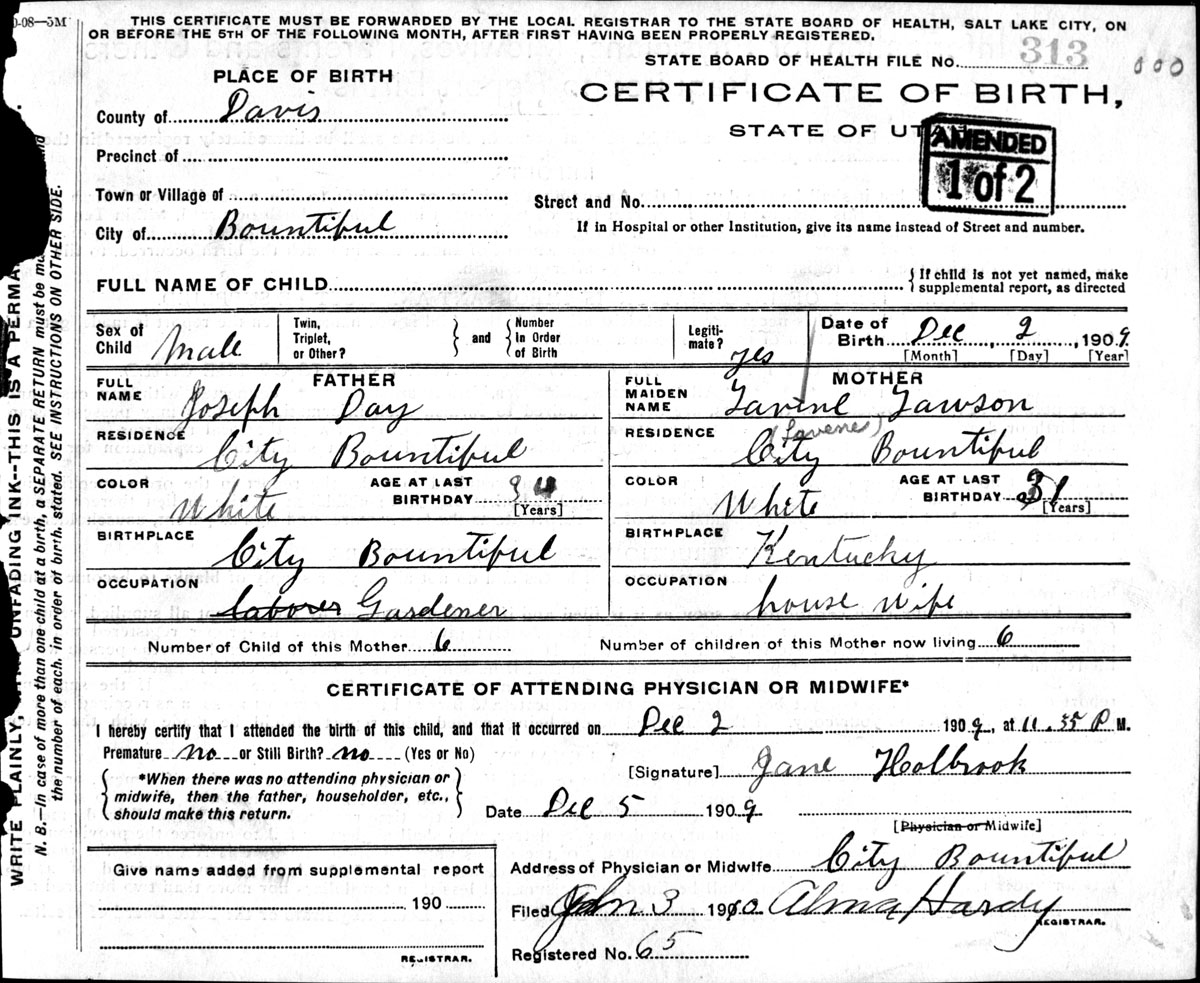 0-08—5M
THIS CERTIFICATE MUST BE FORWARDED BY THE LOCAL REGISTRAR TO THE STATE BOARD OF HEALTH, SALT LAKE CITY, ON
OR BEFORE THE 5TH OF THE FOLLOWING MONTH, AFTER FIRST HAVING BEEN PROPERLY REGISTERED.
STATE BOARD OF HEALTH FILE No. 313
000
PLACE OF BIRTH
CERTIFICATE OF BIRTH,
STATE OF UTAH
AMENDED
1 of 2
County of Davis
Precinct of
Town or Village of
City of Bountiful
Street and No.
If in Hospital or other Institution, give its name instead of Street and number.
FULL NAME OF CHILD
{ If child is not yet named, make
supplemental report, as directed
Sex of Child Male
Twin, Triplet, or Other?
and
Number in Order of Birth
Legitimate? yes
Date of Birth Dec 2, 1909
[Month] [Day] [Year]
FATHER
FULL NAME Joseph Day
RESIDENCE City Bountiful
COLOR White
AGE AT LAST BIRTHDAY 34
[Years]
BIRTHPLACE City Bountiful
OCCUPATION laborer Gardener
MOTHER
FULL MAIDEN NAME Lavine Lawson
(Lavene)
RESIDENCE City Bountiful
COLOR White
AGE AT LAST BIRTHDAY 31
[Years]
BIRTHPLACE Kentucky
OCCUPATION house wife
Number of Child of this Mother 6
Number of children of this Mother now living 6
CERTIFICATE OF ATTENDING PHYSICIAN OR MIDWIFE*
I hereby certify that I attended the birth of this child, and that it occurred on Dec 2 1909, at 11.35 P M.
Premature no or Still Birth? no (Yes or No)
{ *When there was no attending physician or
midwife, then the father, householder, etc.,
should make this return. }
[Signature] Jane Holbrook
Date Dec 5 1909
[Physician or Midwife]
Address of Physician or Midwife City Bountiful
Filed Jan 3 1910 Alma Hardy
REGISTRAR.
Registered No. 65
Give name added from supplemental report
190
REGISTRAR.
WRITE PLAINLY, UNFADING INK--THIS IS A PERMA
N. B.—In case of more than one child at a birth, a SEPARATE RETURN must be ma and
the number of each, in order of birth, stated. SEE INSTRUCTIONS ON OTHER SIDE.